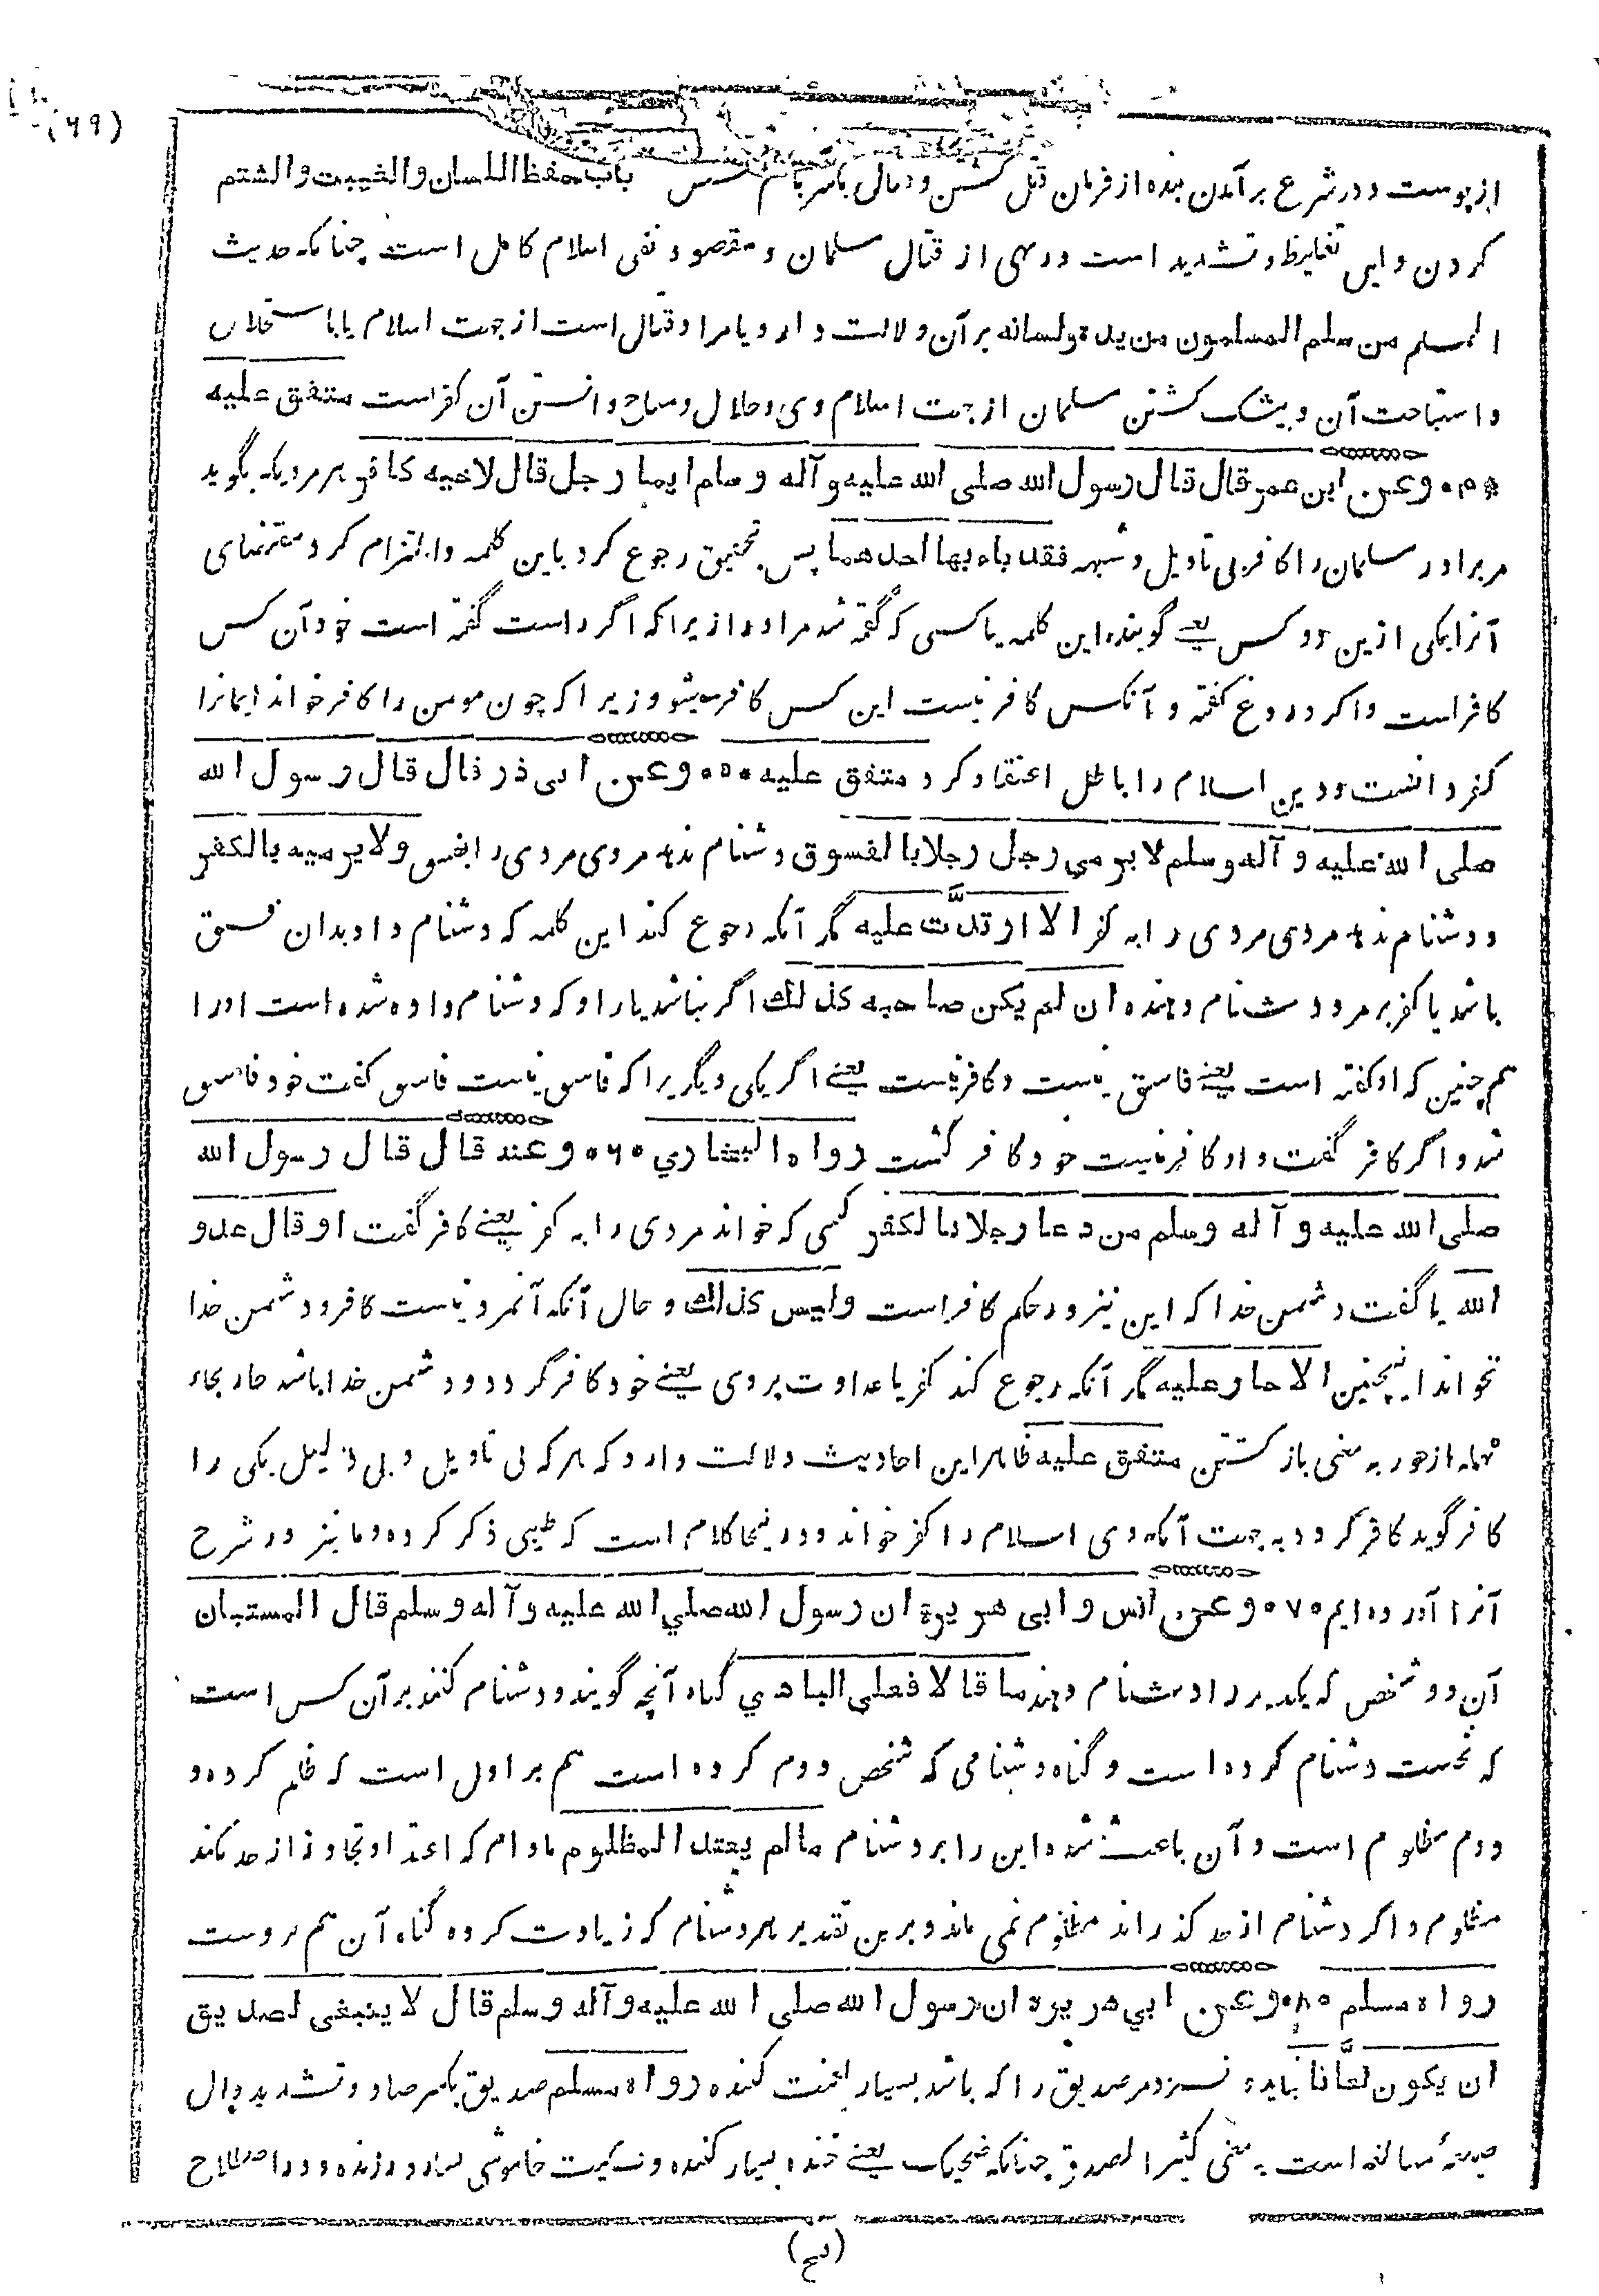 (۴۹)
از پوست و در شرع بر آمدن بنده از فرمان قتل کشتن و قتال باکسر باهم باب حفظ اللسان والغیبت والشتم
کردن و این تغلیظ و تشدید است در نهی از قتال مسلمان و مقصود نفی اسلام کامل است چنانکه حدیث
المسلم من سلم المسلمون من یده ولسانه بر آن دلالت دارد و یا مراد قتال است از جهت اسلام یا با استحلال
و استباحت آن و بیشک کشتن مسلمان از جهت اسلام وی و حلال و مباح دانستن آن کفر است متفق علیه
وعن ابن عمر قال قال رسول الله صلی الله علیه وآله وسلم ایما رجل قال لاخیه کافر هر مردیکه بگوید
مر برادر مسلمان را کافر بی تاویل و شبهه فقد باء بها احدهما پس بتحقیق رجوع کرد باین کلمه و التزام کرد مقتضای
آنرا یکی ازین دو کس یعنے گوینده این کلمه یا کسی که گفته شد مراورا زیرا که اگر راست گفته است خود آن کس
کافر است و اگر دروغ گفته و آنکس کافر نیست این کس کافر میشود زیرا که چون مومن را کافر خواند ایمانرا
کفر دانست و دین اسلام را باطل اعتقاد کرد متفق علیه ۰۵۰ وعن ابی ذر قال قال رسول الله
صلی الله علیه وآله وسلم لا یرمي رجل رجلا بالفسوق دشنام ندهد مردی مردی را بفسق ولا یرمیه بالکفر
و دشنام ندهد مردی مردی را به کفر الا ارتدّت علیه مگر آنکه رجوع کند این کلمه که دشنام داد بدان فسق
باشد یا کفر بر مرد دشنام دهنده ان لم یکن صاحبه کذلك اگر نباشد یار او که دشنام داده شده است اورا
هم چنین که او گفته است یعنے فاسق نیست و کافر نیست یعنے اگر یکی دیگریرا که فاسق نیست فاسق گفت خود فاسق
شد و اگر کافر گفت و او کافر نیست خود کافر گشت رواه البخاري ۰۶۰ وعنه قال قال رسول الله
صلی الله علیه وآله وسلم من دعا رجلا بالکفر کسی که خواند مردی را به کفر یعنے کافر گفت او قال عدو
الله یا گفت دشمن خدا که این نیز در حکم کافر است ولیس کذلك و حال آنکه آنمرد نیست کافر و دشمن خدا
نخواند اینچنین الا حار علیه مگر آنکه رجوع کند کفر یا عداوت بروی یعنے خود کافر گردد و دشمن خدا باشد حار بحاء
مهمله از حور به معنی باز گشتن متفق علیه ظاهر این احادیث دلالت دارد که هرکه بی تاویل و بی دلیل یکی را
کافر گوید کافر گردد به جهت آنکه وی اسلام را کفر خواند و در اینجا کلام است که طیبی ذکر کرده و ما نیز در شرح
آنرا آورده ایم ۰۷۰ وعن انس وابی هریرة ان رسول الله صلي الله علیه وآله وسلم قال المستبان
آن دو شخص که یکدیگر را دشنام دهند ما قالا فعلی البادي گناه آنچه گویند و دشنام کنند بر آن کس است
که نخست دشنام کرده است و گناه دشنامی که شخص دوم کرده است هم بر اول است که ظلم کرده و
دوم مظلوم است و آن باعث شده این را بر دشنام مالم یعتد المظلوم مادام که اعتدا و تجاوز از حد نکند
مظلوم و اگر دشنام از حد گذراند مظلوم نمی ماند و برین تقدیر هر دشنام که زیادت کرده گناه آن هم بروست
رواه مسلم ۰۸۰ وعن ابي هریرة ان رسول الله صلی الله علیه وآله وسلم قال لا ینبغی لصدیق
ان یکون لعّانا نباید و نسزد مر صدیق را که باشد بسیار لعنت کننده رواه مسلم صدیق بکسر صاد و تشدید دال
صیغهٔ مبالغه است به معنی کثیر الصدق چنانکه ضحیک یعنے خنده بسیار کننده و سکیت خاموشی بسیار ورزنده و در اصطلاح